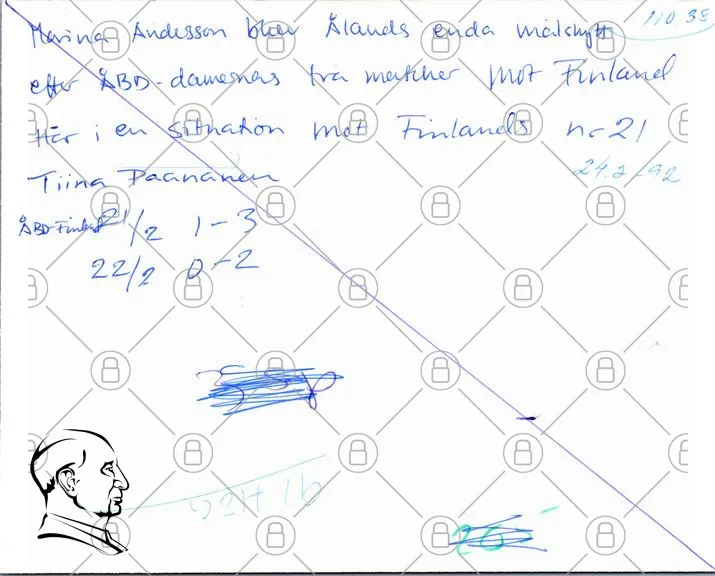 Marina Andersson blev Ålands enda målskytt
efter ÅBD-damernas två matcher mot Finland
Här i en situation mot Finlands nr 21
Tiina Paananen
24.2-92
ÅBD-Finland 21/2 1-3
22/2 0-2
26